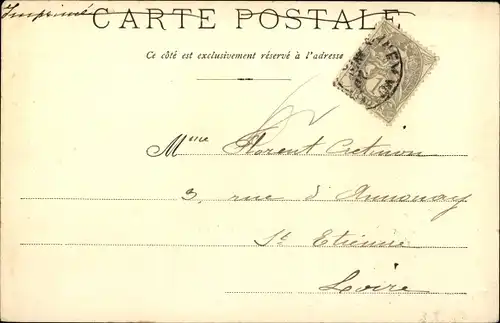 Imprimé
CARTE POSTALE
Ce côté est exclusivement réservé à l'adresse
Mme Florent Cretinon
3, rue d'Annonay
St Etienne
Loire